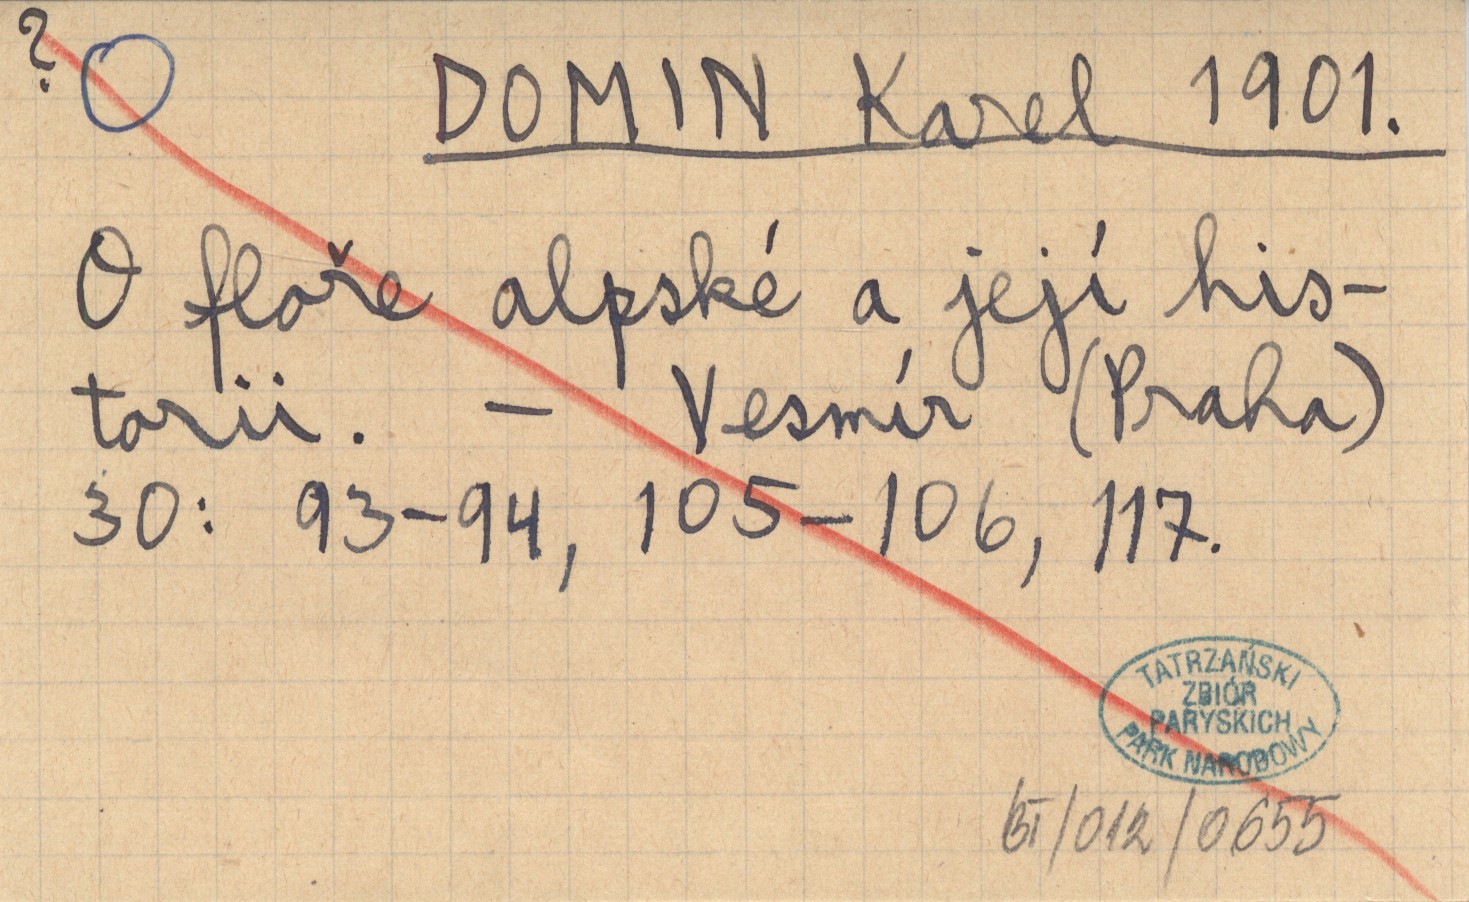 ?
DOMIN Karel 1901.
O floře alpské a její his-
torii. – Vesmír (Praha)
30: 93–94, 105–106, 117.
TATRZAŃSKI
ZBIÓR
PARYSKICH
PARK NARODOWY
BT/012/0655